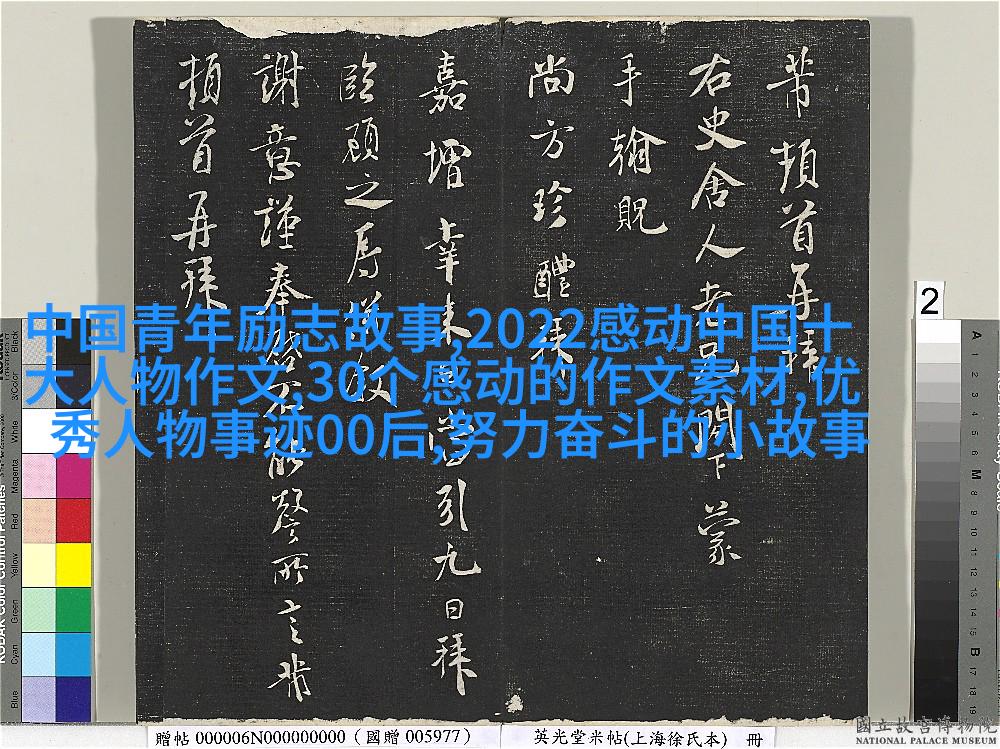 芾頓首再拜
右史舍人老兄閤下蒙
手翰貺
尚方珍醴拜
嘉增幸來日登引九日拜
臨顧之辱
謝意謹奉啓不備能謦所言芾
頓首再拜
中国青年励志故事,2022感动中国十
大人物作文,30个感动的作文素材,优
秀人物事迹00后,努力奋斗的小故事
2
KODAK Color Control Patches
Blue
Cyan
Green
Yellow
Red
Magenta
White
3/Color
Black
A
1
2
3
4
5
6
M
8
9
10
11
12
13
14
15
B
17
18
19
贈帖 000006N000000000 (國贈 005977)
英光堂米帖(上海徐氏本) 冊
國立故宮博物院
NATIONAL PALACE MUSEUM